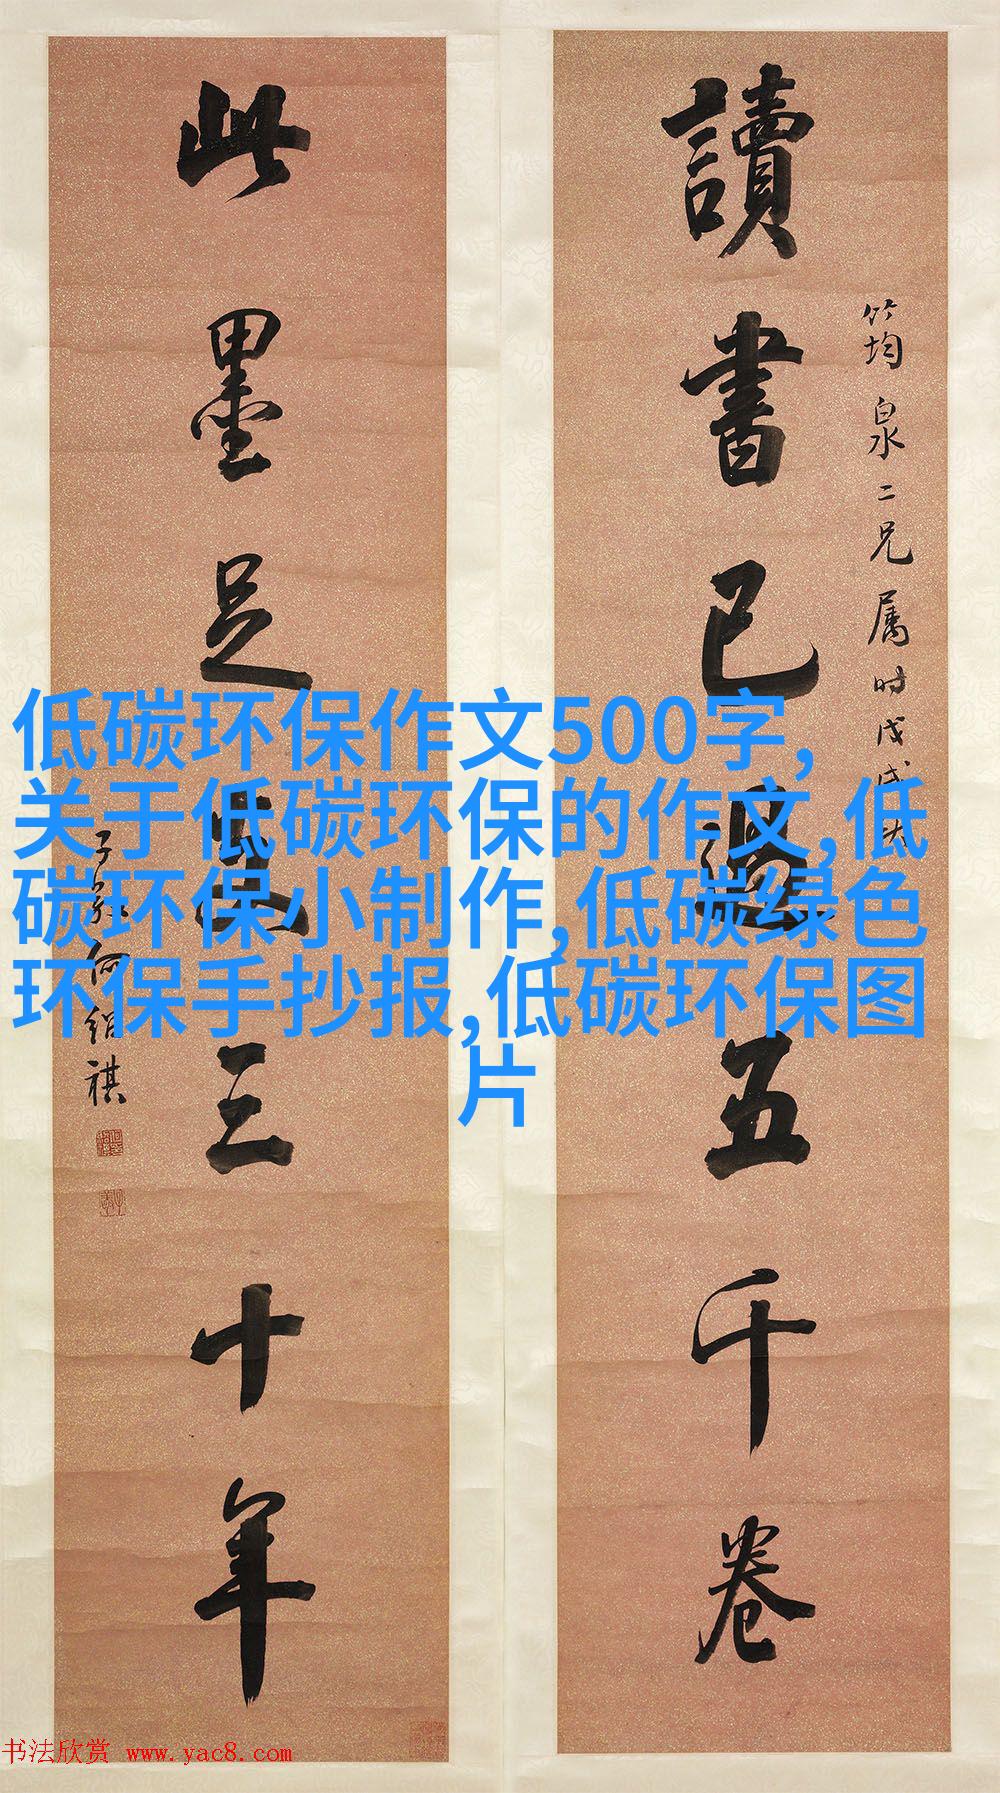 讀書已過五千卷
筠泉二兄属时戊戌大
此墨足支三十年
子敬何绍祺
低碳环保作文500字,
关于低碳环保的作文,低
碳环保小制作,低碳绿色
环保手抄报,低碳环保图
片
书法欣赏 www.yac8.com